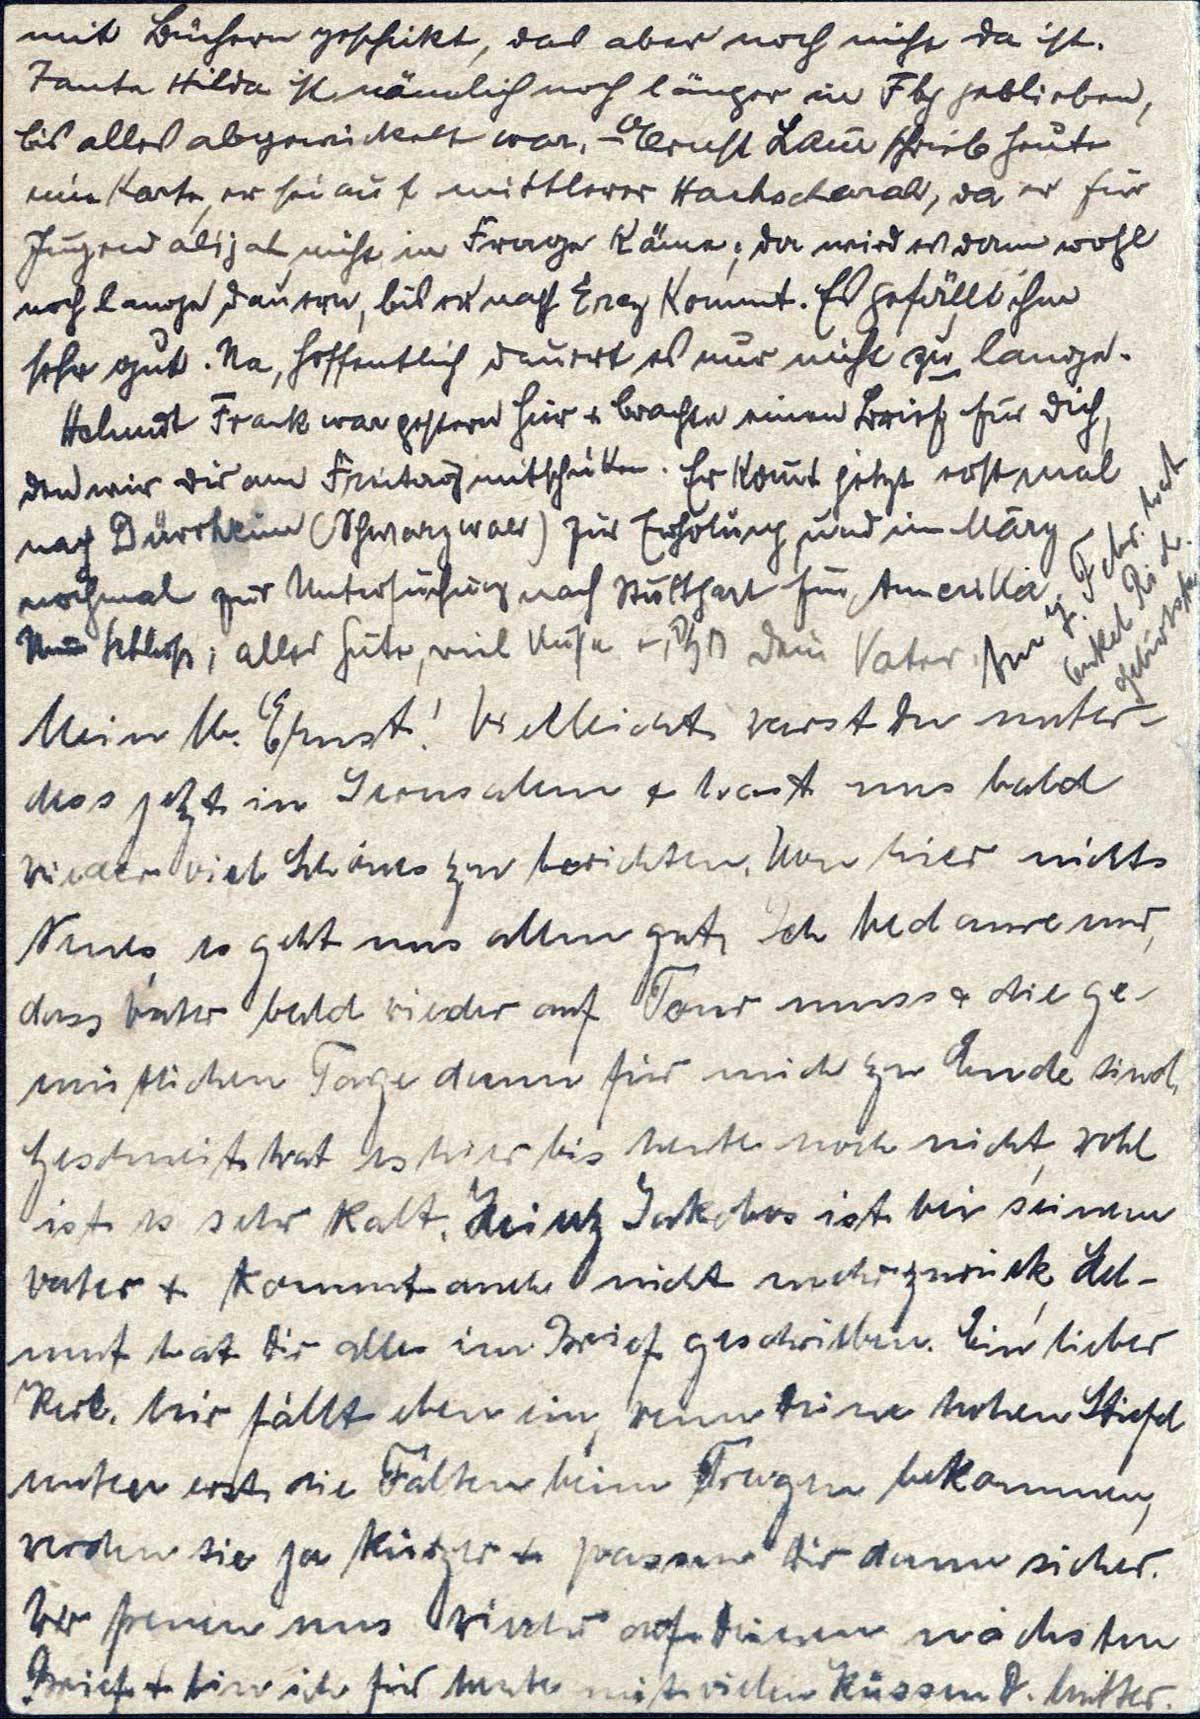 mit Büchern geschikt, das aber noch nicht da ist.
Tante Hilda ist nämlich noch länger in Fbg geblieben,
bis alles abgewickelt war. – Ernst Laur schrieb heute
eine Karte, er sei auf mittlerer Hachscharah, da er für
Jugendalijah nicht in Frage käme; da wird es dann wohl
noch lange dauern, bis er nach Erez kommt. Es gefällt ihm
sehr gut. Na, hoffentlich dauert es nur nicht zu lange.
Helmut Frank war gestern hier + brachte einen Brief für Dich,
den wir Dir am Freitag mitschikten. Er kommt jetzt erst mal
nach Dürrheim (Schwarzwald) zur Erholung und im März
nochmal zur Untersuchung nach Stuttgart für Amerika.
Nun Schluss, alles Gute, viel Küsse Dein Vater.
Am 7. Febr. hat
onkel Rich.
Geburtstg.
Mein lb. Ernst! Vielleicht warst Du unter-
dess jetzt in Jerusalem + hast uns bald
wieder viel Schönes zu berichten. Von hier nichts
Neues, es geht uns allen gut. Ich bedaure nur,
dass Vater bald wieder auf Tour muss + die ge-
mütlichen Tage dann für mich zu Ende sind.
Geschneit hat es hier bis heute noch nicht, wohl
ist es sehr kalt. Heinz Jakobs ist bei seinem
Vater + kommt auch nicht mehr zurück. Hel-
mut hat Dir alles im Brief geschrieben. Ein lieber
Kerl. Mir fällt eben ein, wenn Deine hohen Stiefel
unten erst die Falten beim Tragen bekommen,
werden sie ja kürzer + passen Dir dann sicher.
Wir freuen uns wieder auf Deinen nächsten
Brief + bin ich für heute mit vielen Küssen D. Mutter.